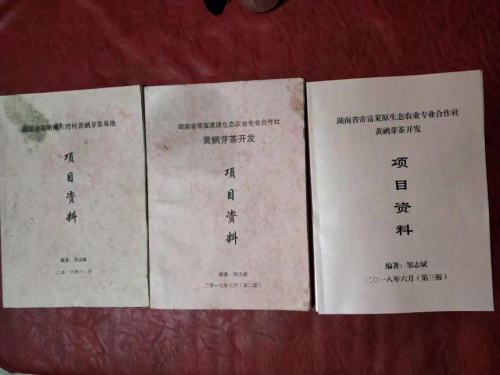 湾村黄鹂芽茶基地
项
目
资
料
编著：邹志斌
二〇一六年十二月
湖南省帝富莱原生态农业专业合作社
黄鹂芽茶开发
项
目
资
料
编著：邹志斌
二〇一七年七月（第二版）
湖南省帝富莱原生态农业专业合作社
黄鹂芽茶开发
项
目
资
料
编著：邹志斌
二〇一八年六月（第三版）